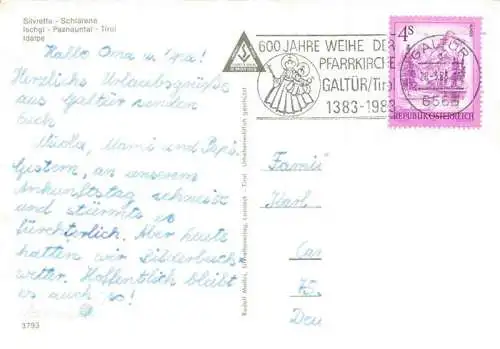 Silvretta - Schiarena
Ischgl - Paznauntal - Tirol
Idalpe
Hallo Oma u. Opa!
Herzliche Urlaubsgrüße
aus Galtür senden
Euch
Mami und Papi.
Gestern, an unserem
Ankunftstag schneite
und stürmte es
fürchterlich. Aber heute
hatten wir "Bilderbuch"
wetter. Hoffentlich bleibt
es auch so!
3793
Rudolf Mathis, Silvrettaverlag, Landeck - Tirol Urheberrechtlich geschützt
600 JAHRE WEIHE DER
PFARRKIRCHE
GALTÜR/Tirol
1383-1983
4S
GALTÜR
6563
REPUBLIK ÖSTERREICH
Famili
Karl